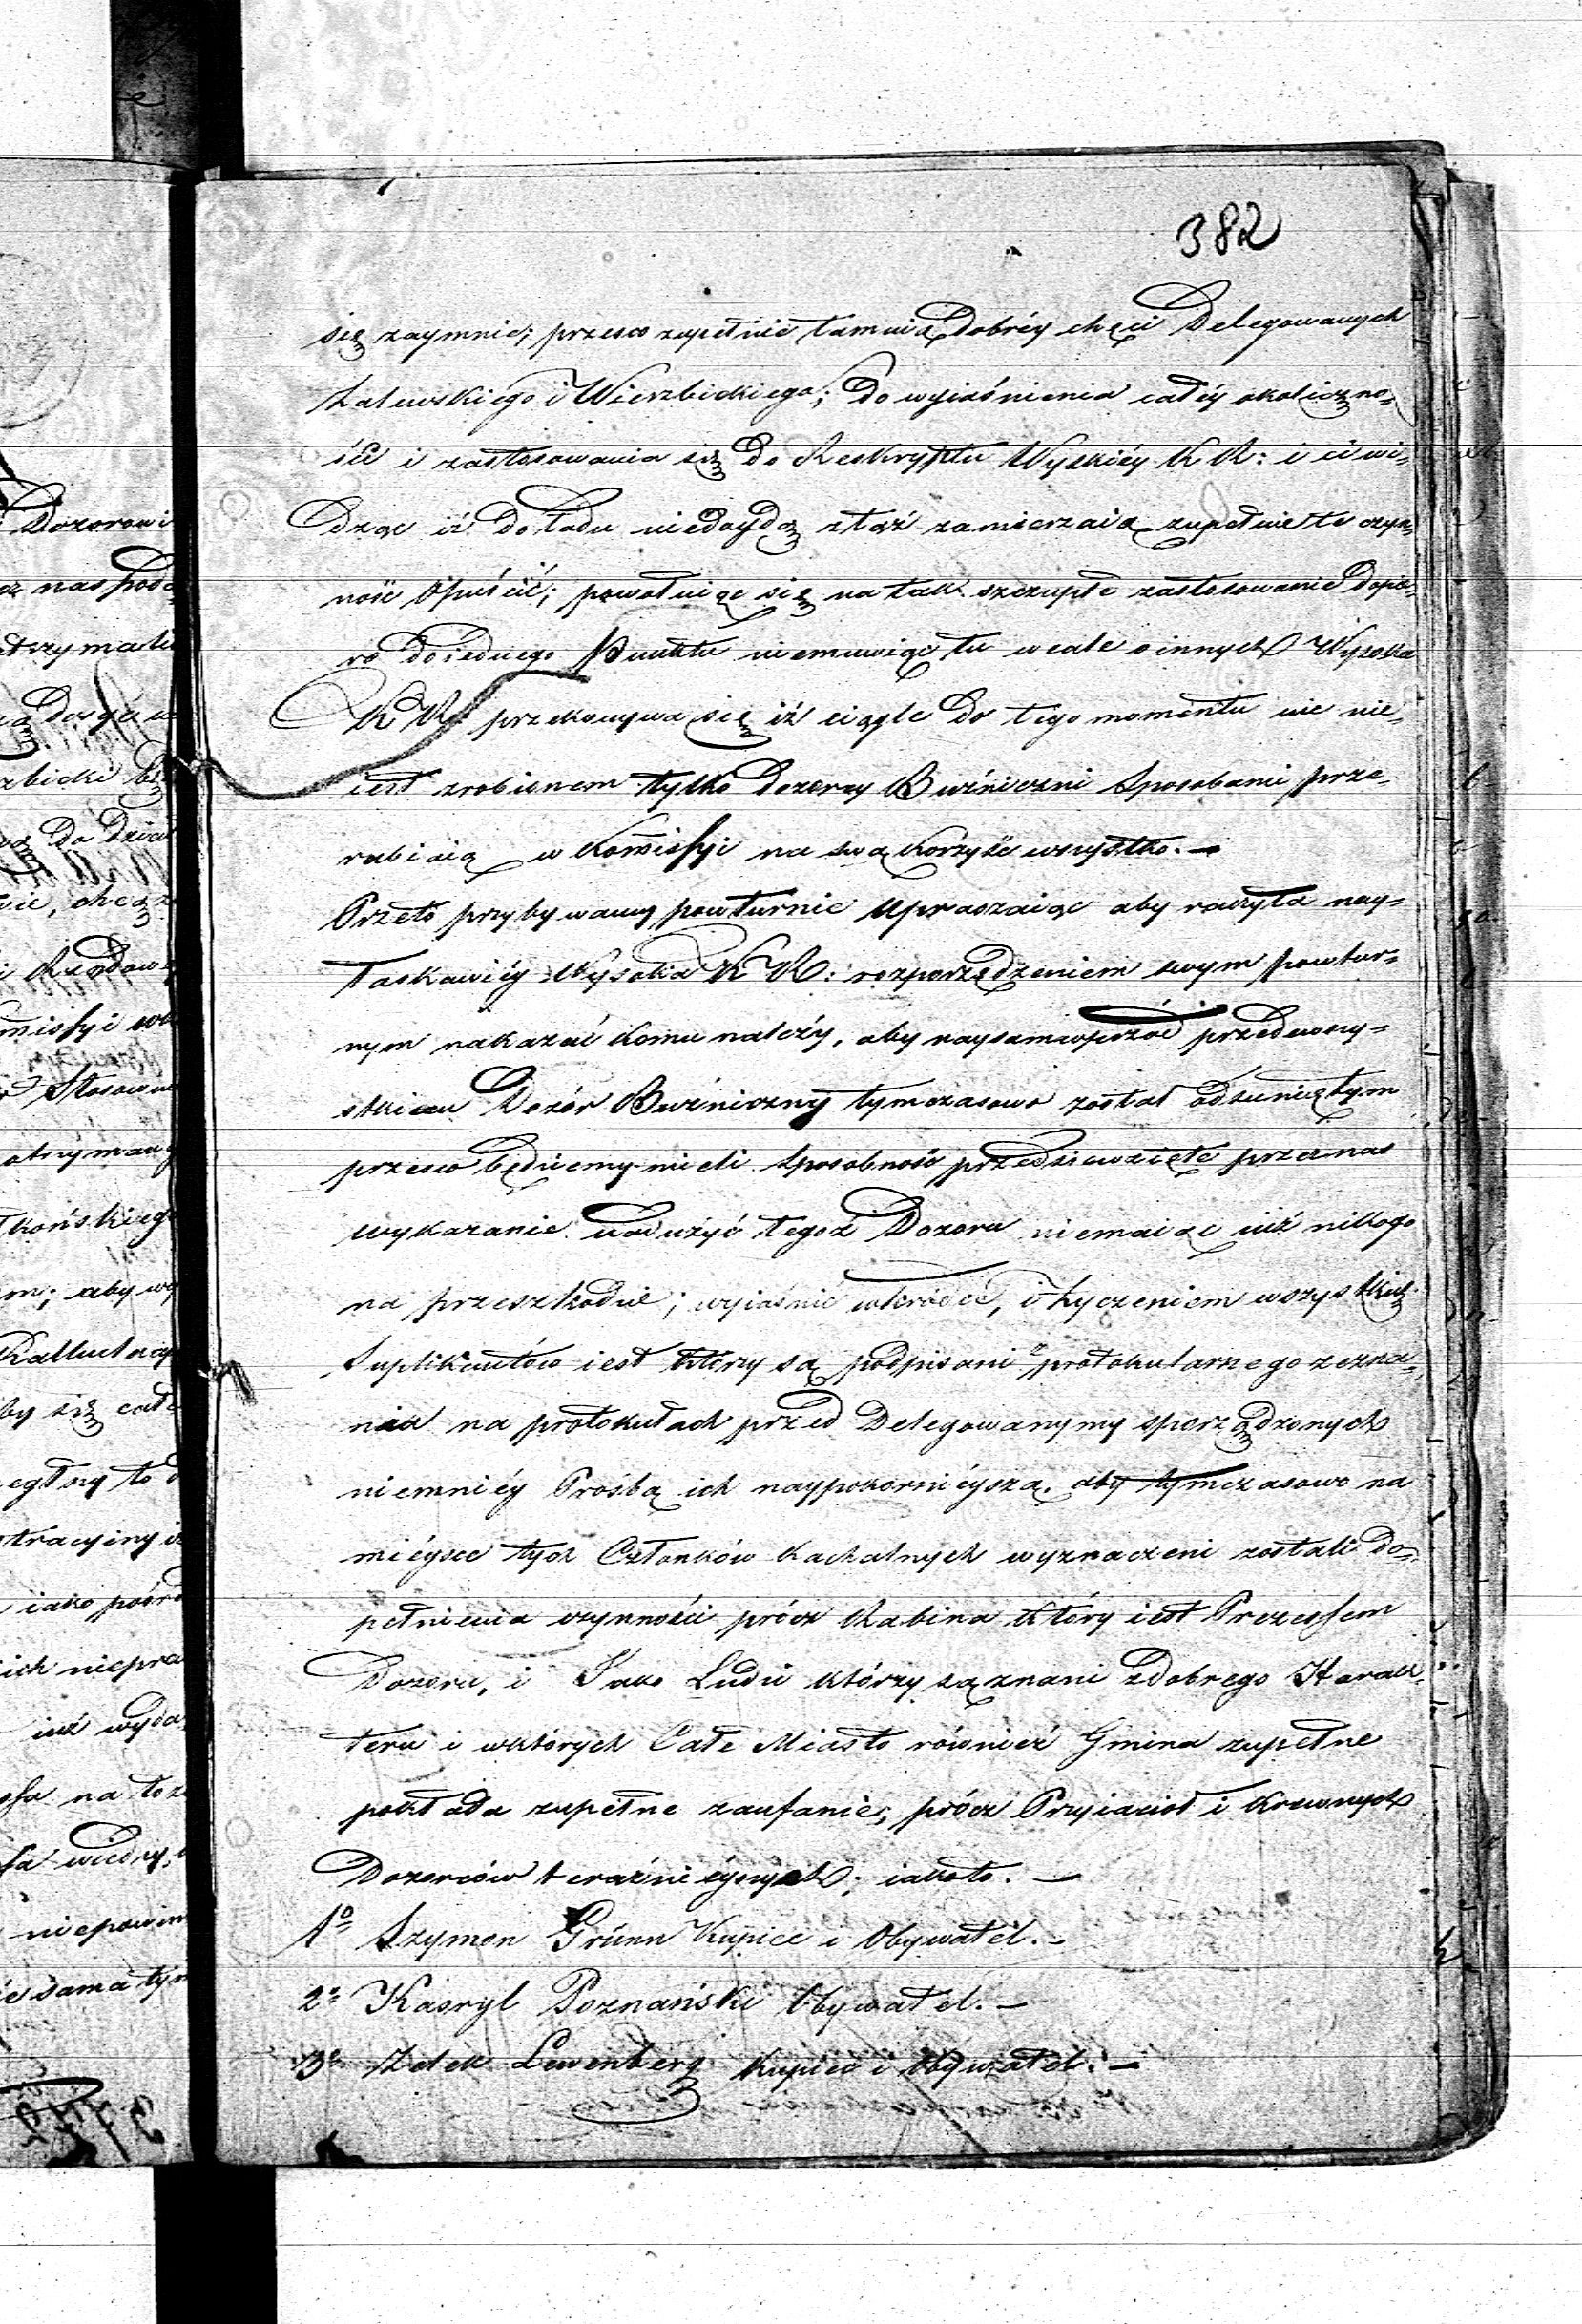 382
się zaymnie; przezco zupełnie tamuią dobréy chęci Delegowanych
Zalewskiego i Wierzbickiego; do wyiaśnienia całéy okoliczno-
ści i zastosowania się do Reskryptu Wysokiéy K R: i ci wi-
dząc iż do ładu niedoydą ztąż zamierzaią zupełnie te czyn-
ność opuścić; powołuiąc się na tak szczupłe zastosowanie dopie-
ro do iednego Punktu niemuwiąc tu wcale o innych Wysoka
K R: przekonywa się iż ciągle do tego momentu nic nie-
iest zrobionem tylko Dozorcy Buźniczni sposobami prze-
rabiaią w Komissyi na swą korzyść wszystko. —
Przeto przybywamy powturnie upraszaiąc aby raczyła nay-
łaskawiéy Wysoka K R: rozporządzeniem swym powtur-
nym nakazać komu należy, aby naysamwprzód przedwszy-
stkiem Dozór Buźniczny tymczasowo został odsuniętym
przezco będziemy mieli sposobność przedsiewzięte przeznas
wykazanie nadużyć tegoż Dozoru niemaiąc iuż nikogo
na przeszkodzie; wyiaśnić wkrótce, i życzeniem wszystkich
Suplikantów iest którzy są podpisani protokularnego zezna-
nia na protokułach przed Delegowanymy sporządzonych
niemniéy Prośbą ich naypokorniéyszą. aby tymczasowo na
miéysce tych Członków Kachalnych wyznaczeni zostali do-
pełnienia czynności prócz Rabina który iest Prezessem
Dozoru, i Jako Ludzi którzy są znani z dobrego Harak-
teru i wktórych Całe Miasto również Gmina zupełne
pokłada zupełne zaufanie; prócz Przyiaciół i Krewnych
Dozorców teraźnieyszych; iakoto. —
1o Szymon Grünn Kupiec i Obywatel. —
2o Kasryl Poznański Obywatel. —
3o Zelek Lewenberg Kupiec i Obywatel. —